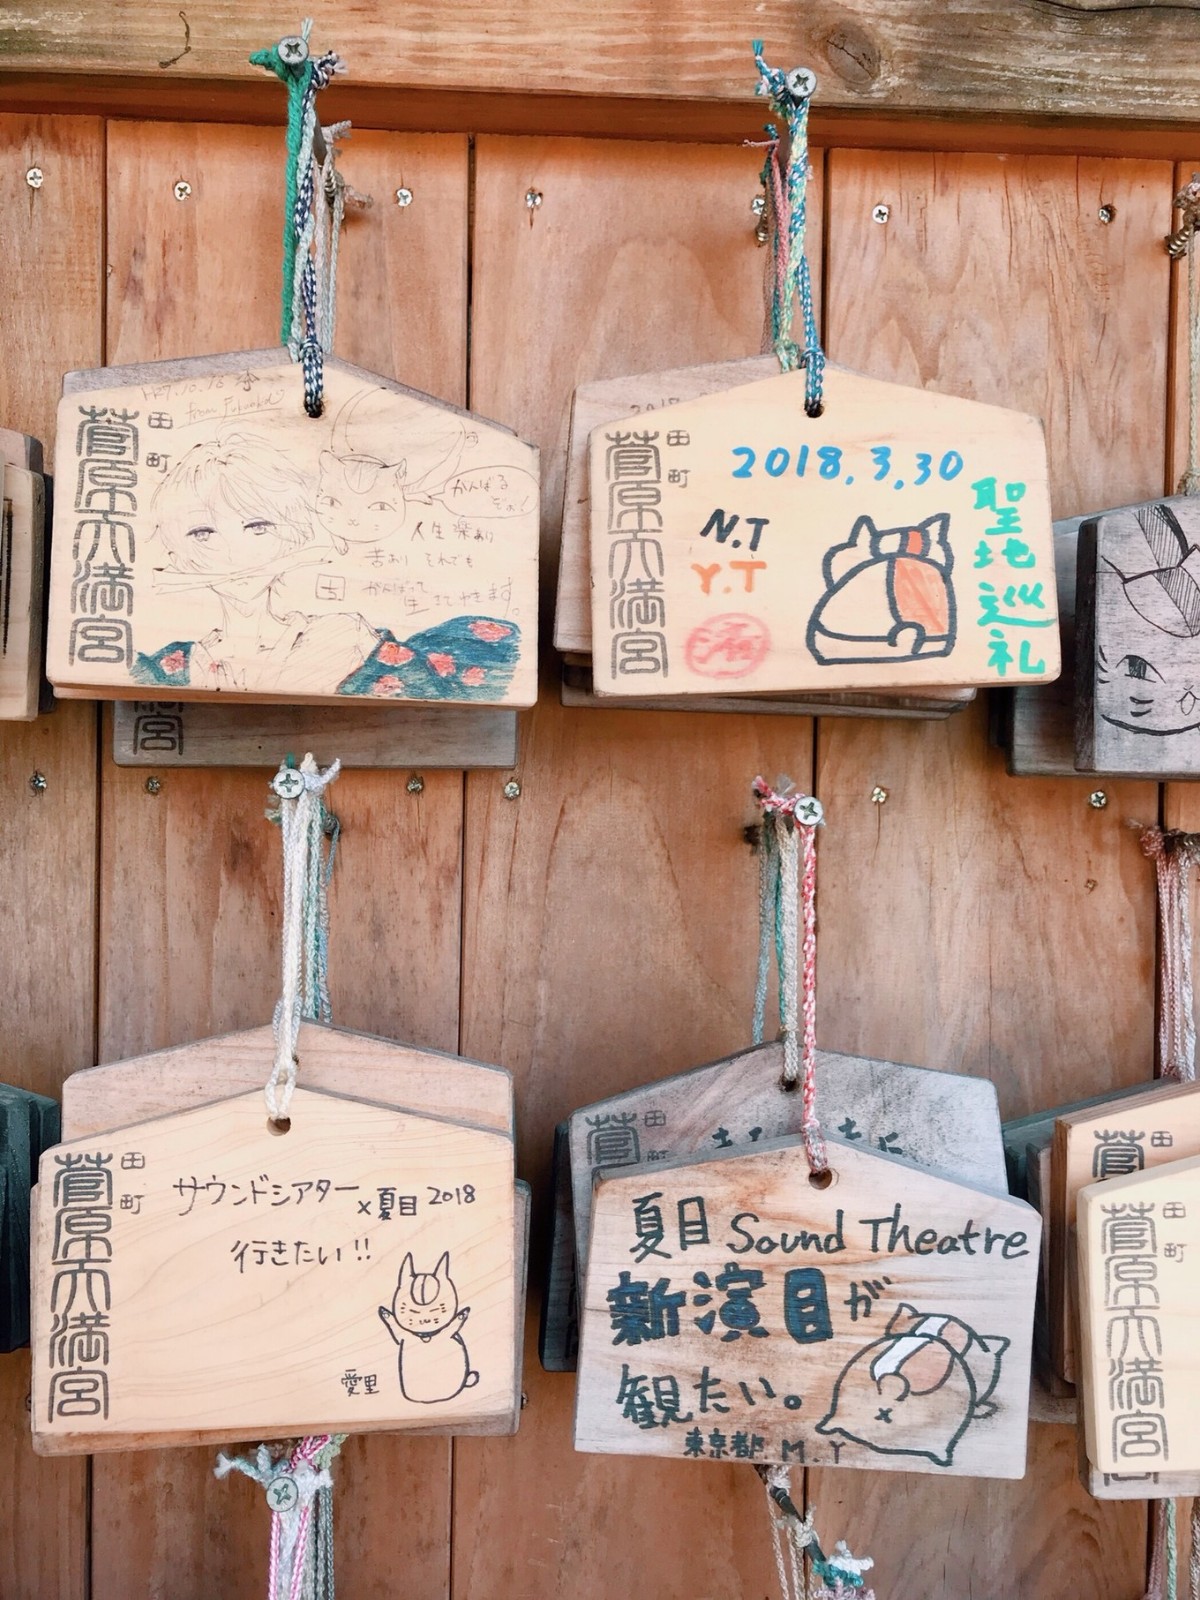 田町
菅原天満宮
from Fukuoka
がんばるぞぉ!
人生楽あり
苦あり それでも
がんばって
生きてゆきます。
田町
菅原天満宮
2018.3.30
N.T
Y.T
聖地巡礼
宮
田町
菅原天満宮
サウンドシアター×夏目 2018
行きたい!!
愛里
田町
菅
夏目 Sound Theatre
新演目が
観たい。
東京都 M.Y
田
菅
田町
菅原天満宮